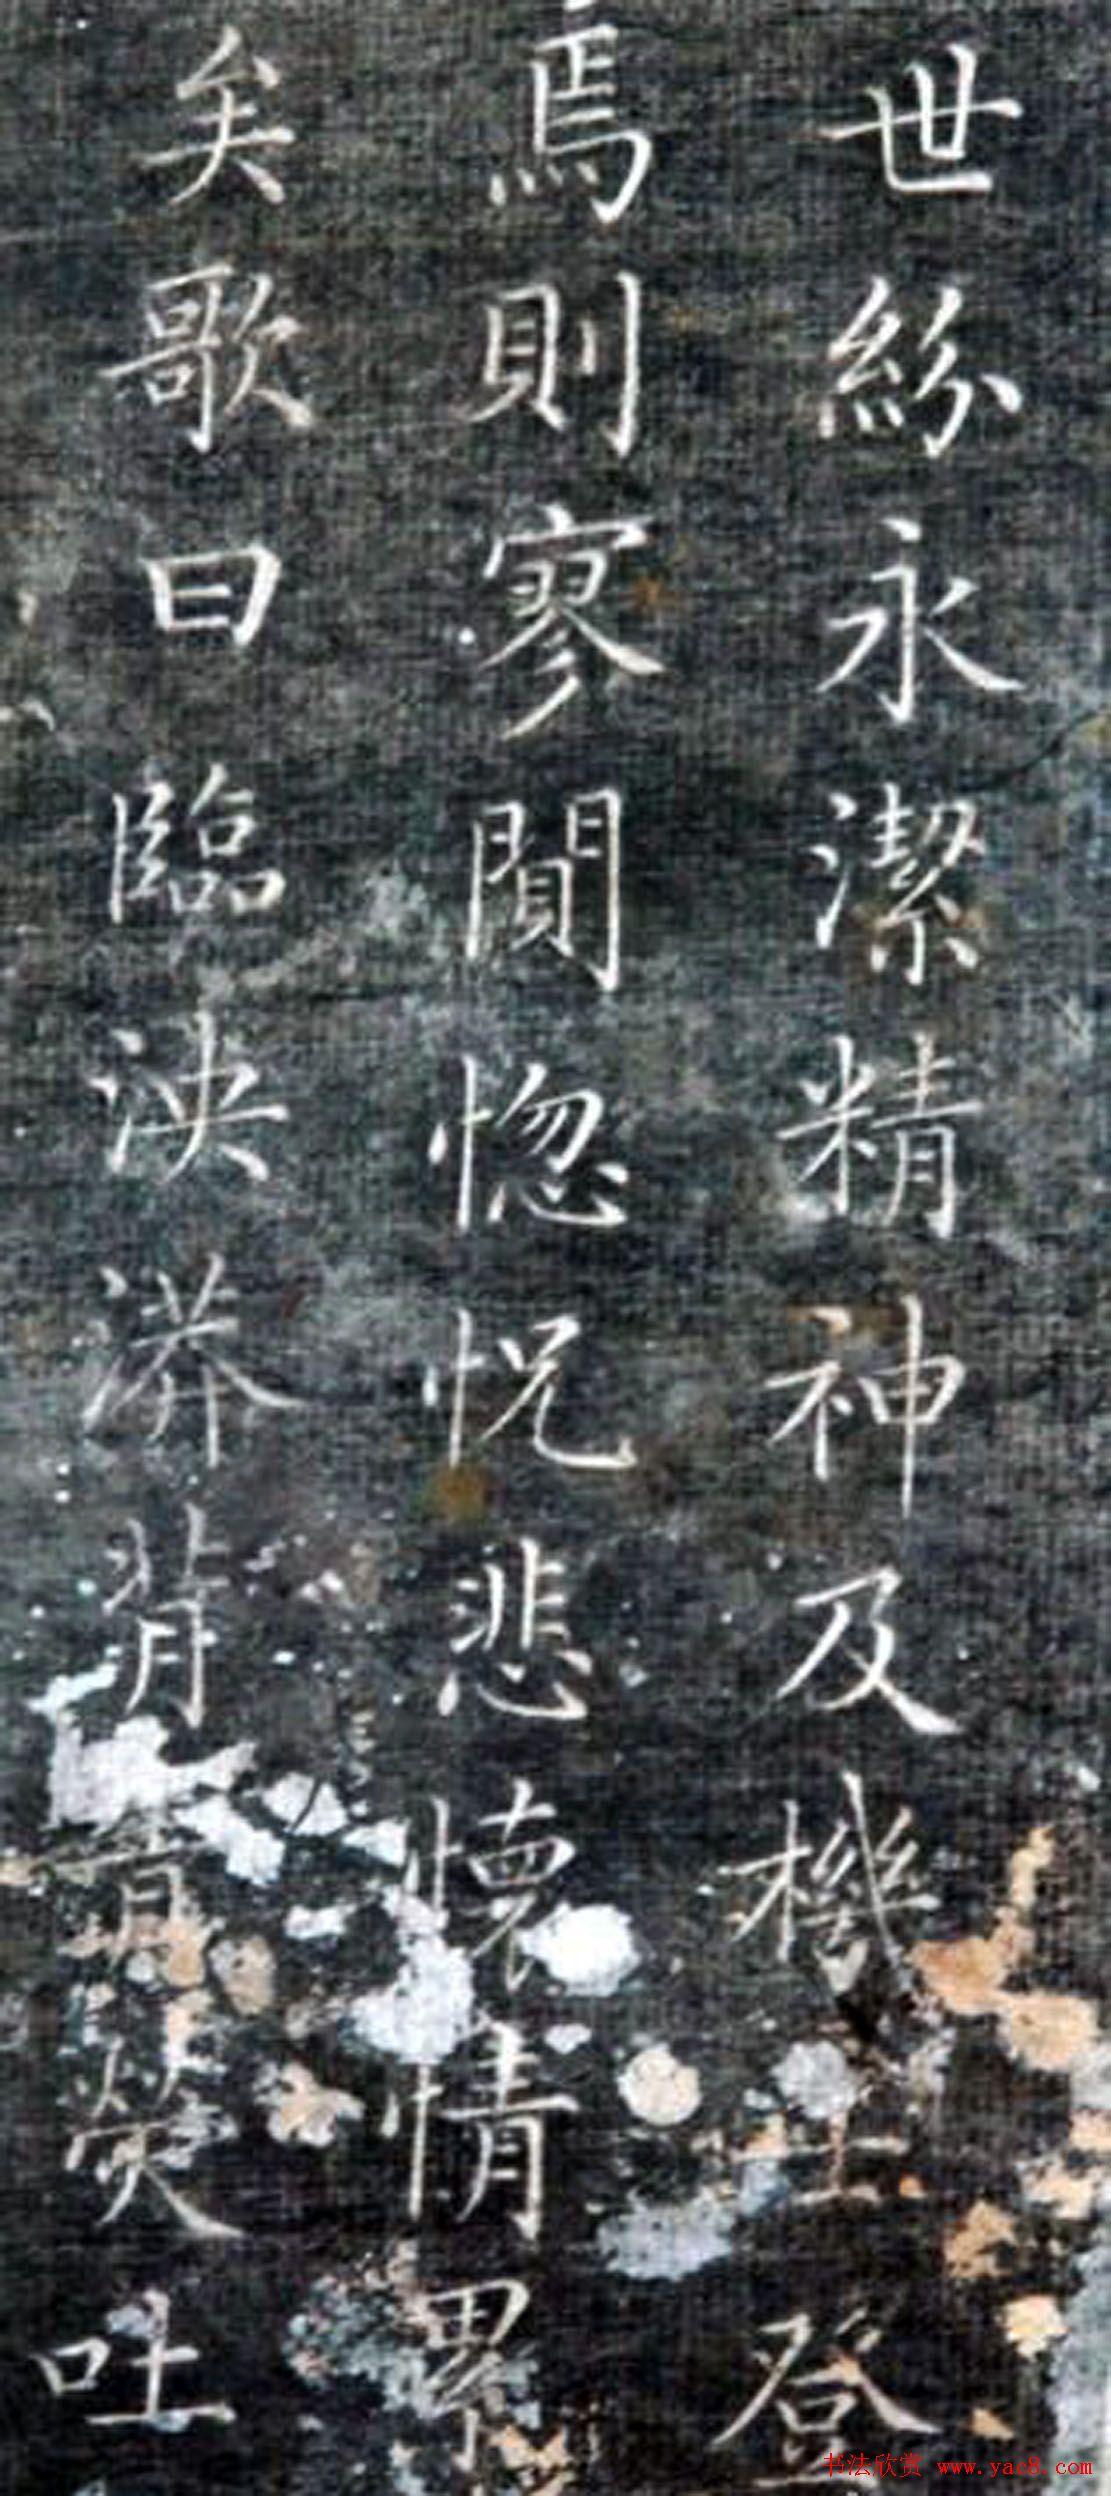 世紛永潔精神及機士登
焉則寥閴惚怳悲懷情累
矣歌曰臨泱漭背青熒吐
书法欣赏 www.yac8.com